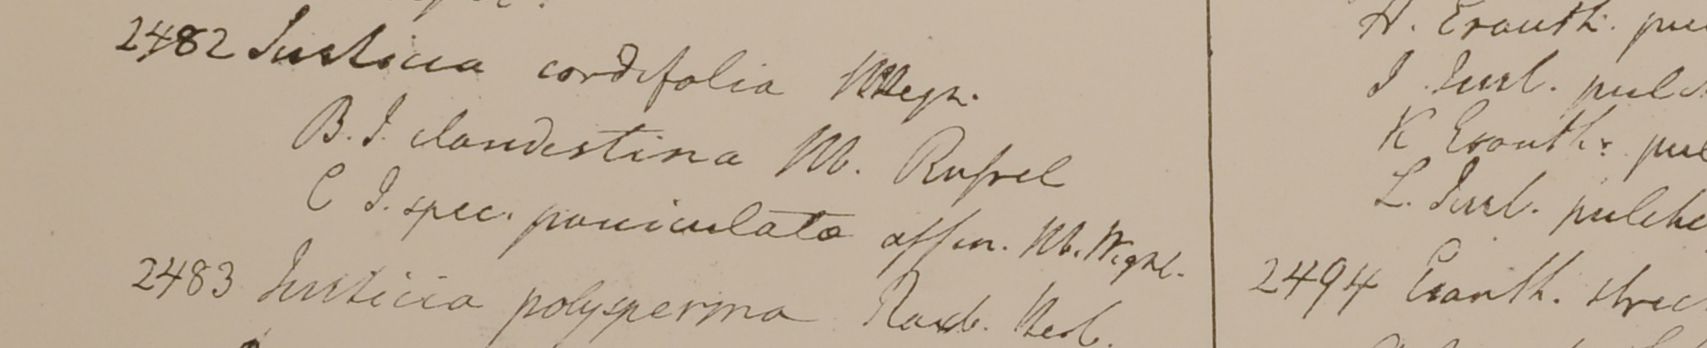 2482 Justicia cordifolia
B. J. clandestina Hb. Russel
C J. spec. paniculata affin. Hb. Wight.
2483 Justicia polysperma Roxb. Herb.
H. Eranth.
J Just.
K Eranth.
L. Just.
2494 Eranth.